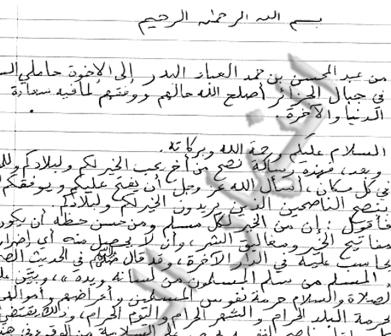 بسم الله الرحمن الرحيم
من عبد المحسن بن حمد العباد البدر إلى الإخوة حاملي
في جبال الجزائر أصلح الله حالهم ووفقهم لما فيه سعادة
الدنيا والآخرة.
السلام عليكم ورحمة الله وبركاته.
وبعد، فهذه رسالة نصح من أخ يحب الخير لكم ولبلادكم
في كل مكان، أسأل الله عز وجل أن يفتح عليكم ويوفقكم
بنصح الناصحين الذين يريدون الخير لكم ولبلادكم
فأقول: إن من الخير لكل مسلم ومن حسن حظه أن يكون
مفاتيح الخير ومغاليق الشر، وأن لا يحصل منه أي
يحاسب عليه في الدار الآخرة، وقد قال ﷺ في الحديث
المسلم من سلم المسلمون من لسانه ويده»، وبين
الصلاة والسلام حرمة نفوس المسلمين وأعراضهم وأموالهم
حرمة البلد الحرام والشهر الحرام واليوم الحرام،